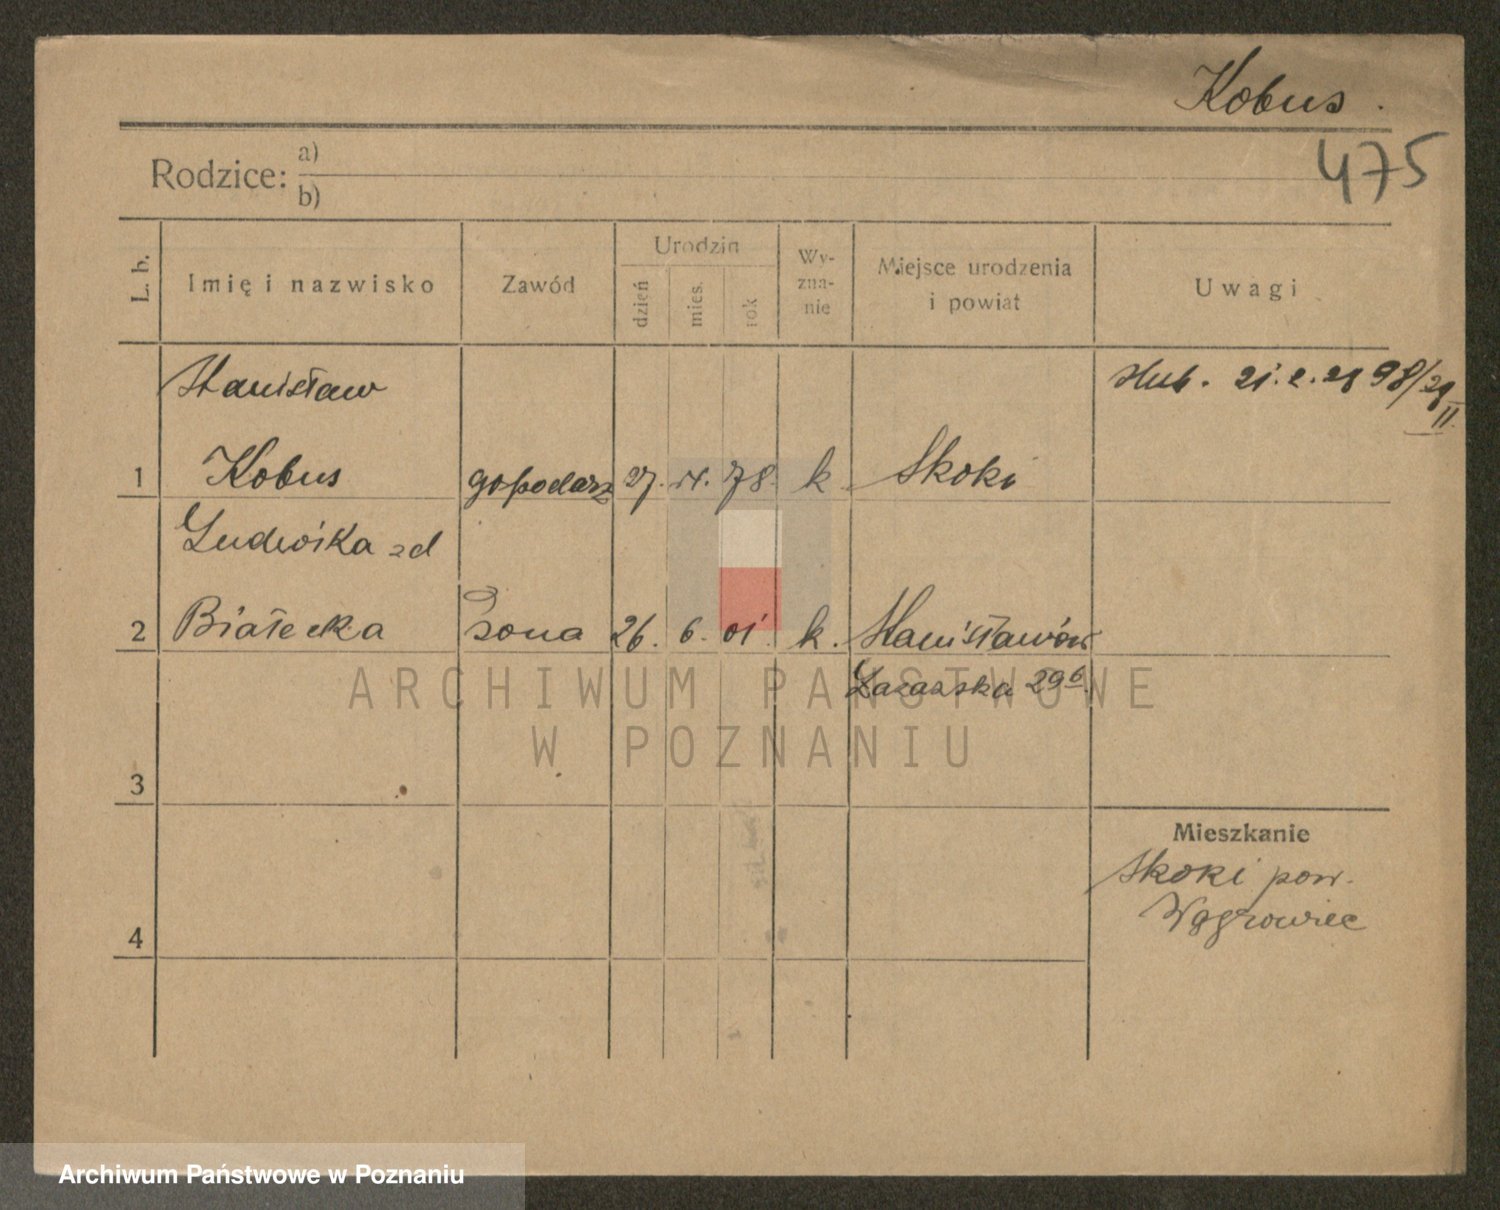 Kobus.
475
Rodzice: a)
b)
L. b.
Imię i nazwisko
Zawód
Urodzin
dzień
mies.
rok
Wy-
zna-
nie
Miejsce urodzenia
i powiat
Uwagi
Stanisław
1 Kobus gopodarz 27. 78. k Skoki
Ludwika zd
2 Białecka żona 26. 6. 01. k. Stanisławów
29
3
4
Mieszkanie
Skoki pow.
Wągrowiec
ARCHIWUM PAŃSTWOWE
W POZNANIU
Archiwum Państwowe w Poznaniu